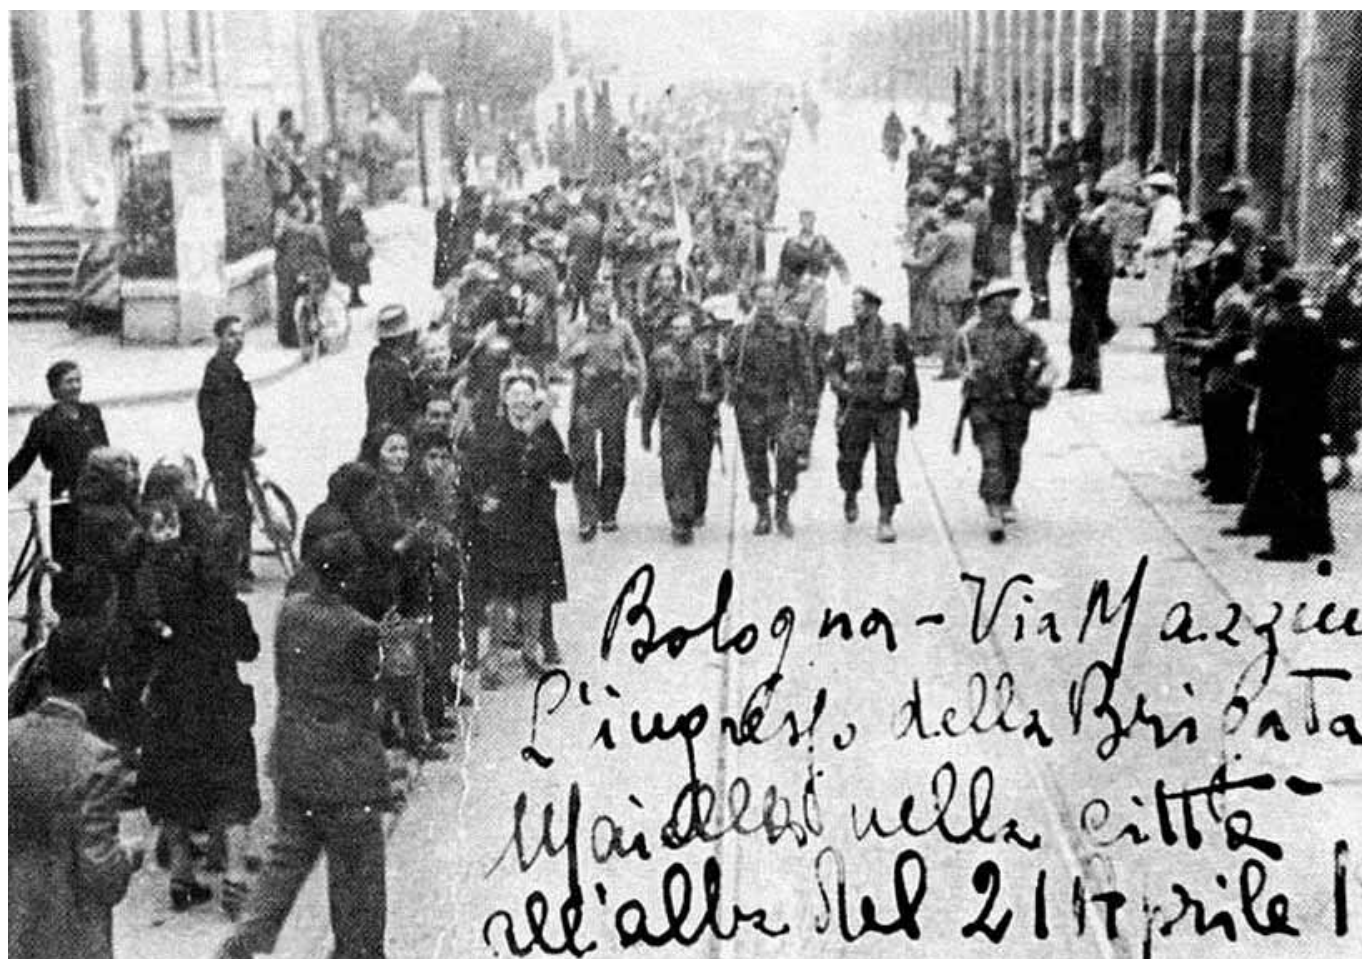 Bologna - Via Mazzini
L'ingresso della Brigata
Maiella nella città
all'alba del 21 Aprile 1